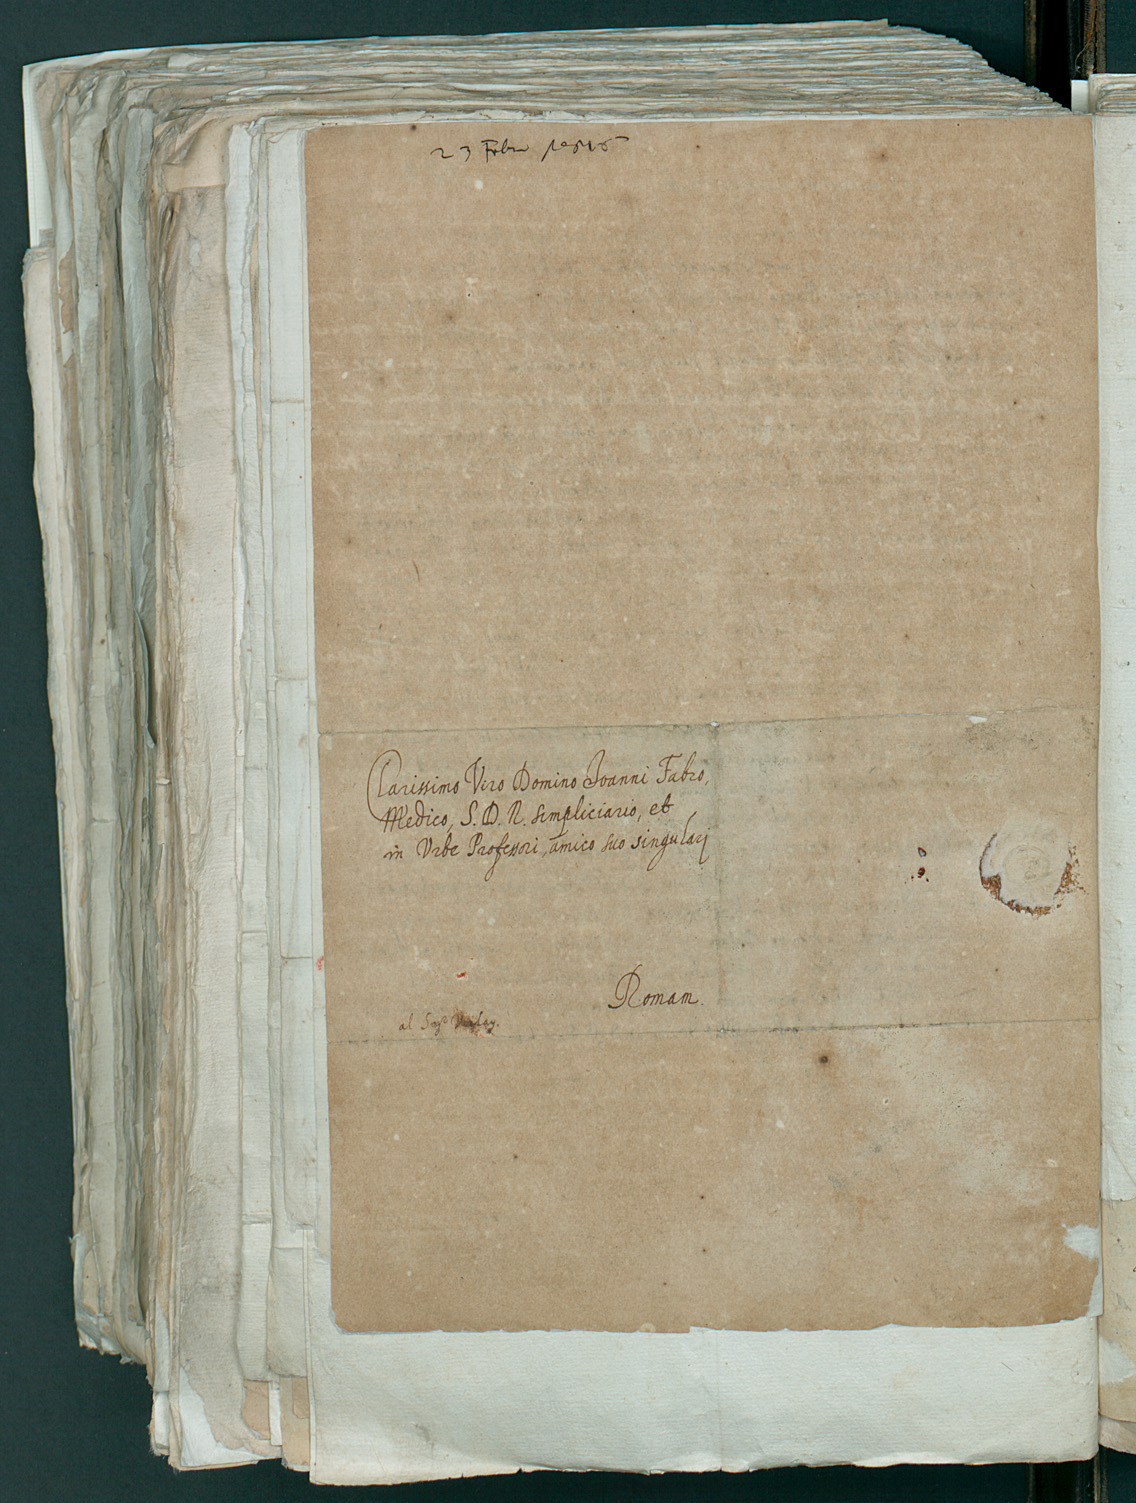 23 Febr
Clarissimo Viro Domino Joanni Fabro,
Medico, S. D. N. simpliciario, et
in Vrbe Professori, amico suo singularj
Romam.
al Sigr